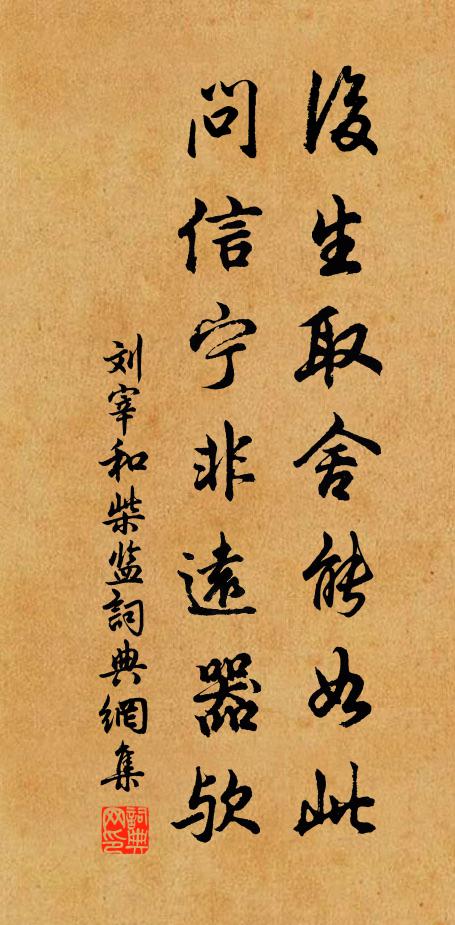 後生取舍能如此
问信宁非遠器欤
刘宰和柴监詞典網集
詞典网印